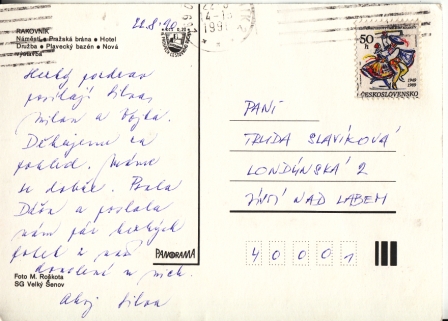 RAKOVNÍK
Náměstí • Pražská brána • Hotel
Družba • Plavecký bazén • Nová
výstavba
22.8.90
Hezký pozdrav
posílají Silva,
Milan a Vojta.
Děkujeme za
pohled. Máme
se dobře. Psala
Dáša a poslala
nám pár hezkých
fotek z
dovolené u nich.
Ahoj Silva
PANORAMA
Foto M. Roškota
SG Velký Šenov
50 h
1949
1989
ČESKOSLOVENSKO
1991
PANÍ
TRUDA SLAVÍKOVÁ
LONDÝNSKÁ 2
ÚSTÍ NAD LABEM
40001